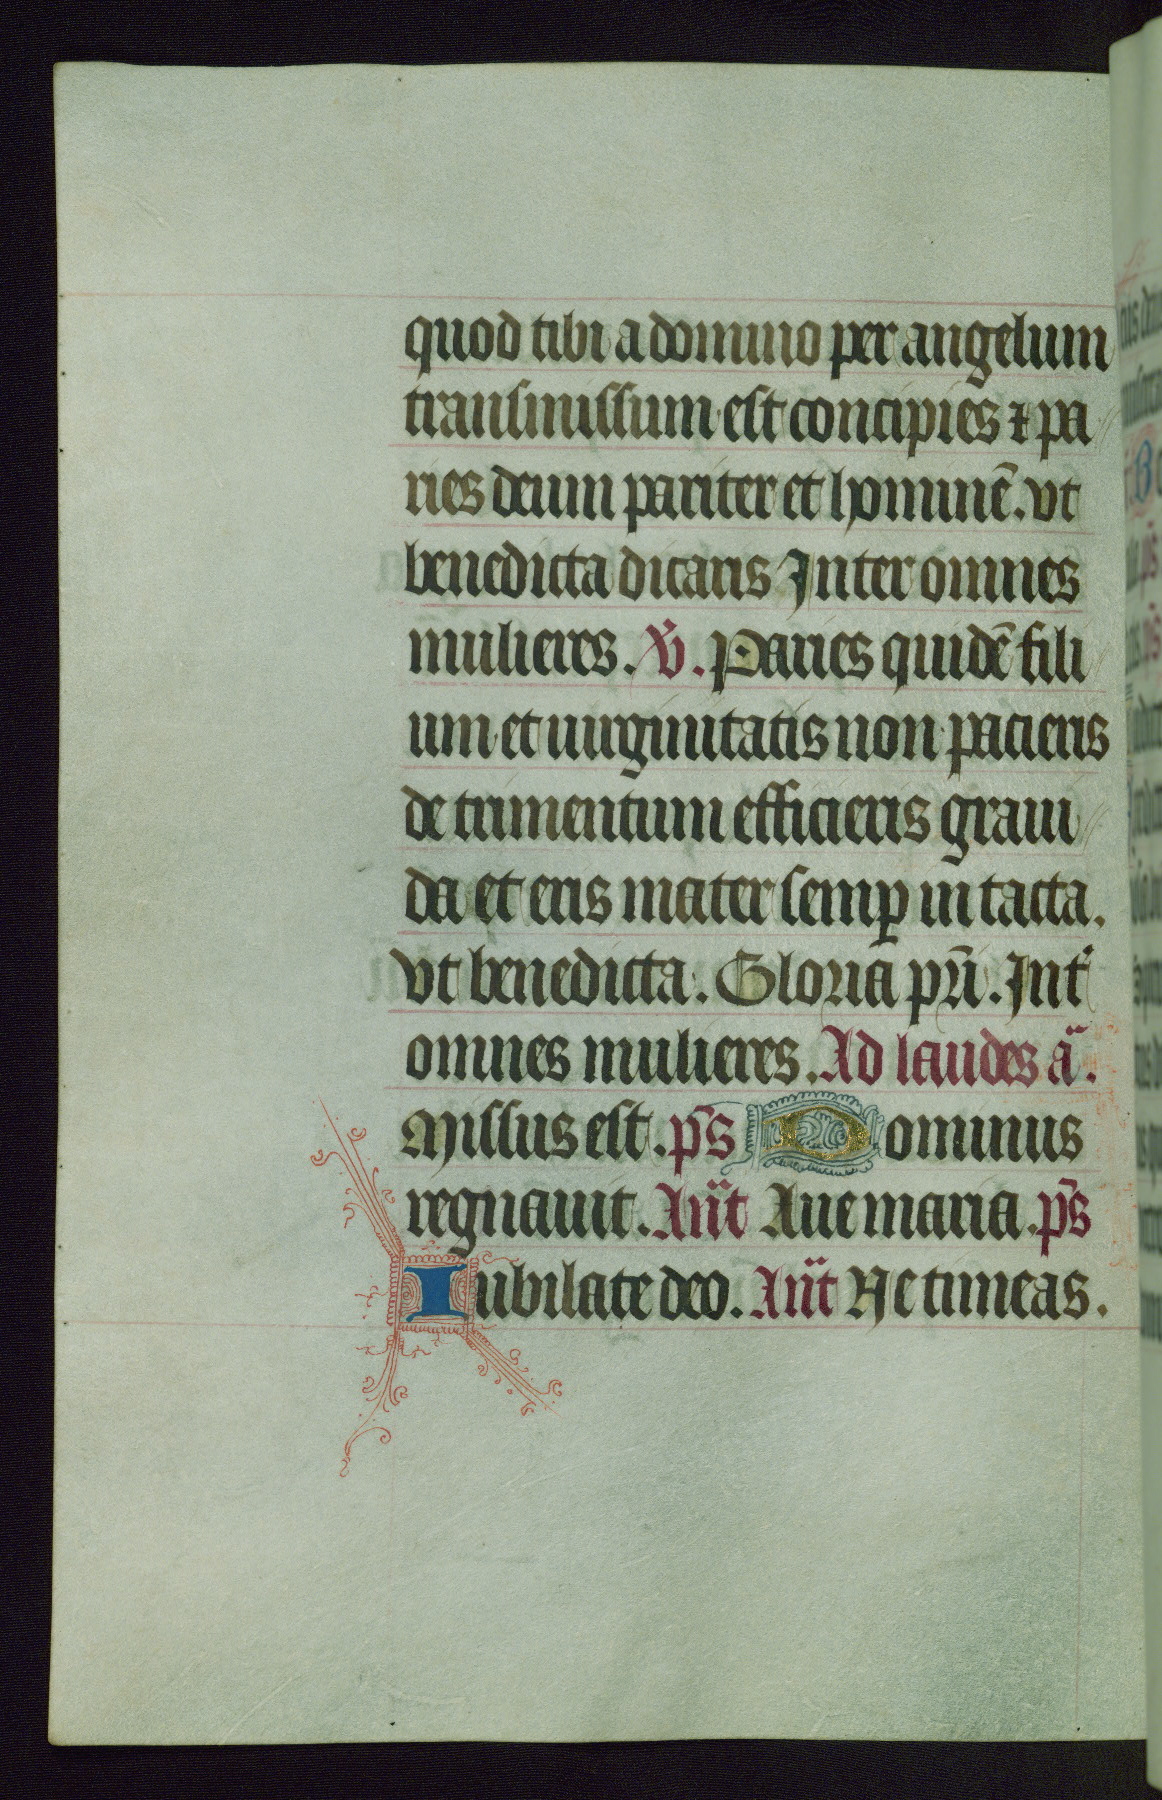 quod tibi a domino per angelum
transmissum est concipies ⁊ pa
ries deum pariter et hominē. vt
benedicta dicaris Inter omnes
mulieres. ꟟. Paries quidē fili
um et uirginitatis non pacieris
de trimentum efficieris graui
da et eris mater semꝑ in tacta.
vt benedicta. Gloria pr̄i. Int᷑
omnes mulieres. Ad laudes aᷓ.
Missus est. p̄s Dominus
regnauit. An̄t Aue maria. p̄s
Iubilate deo. An̄t Ne timeas.